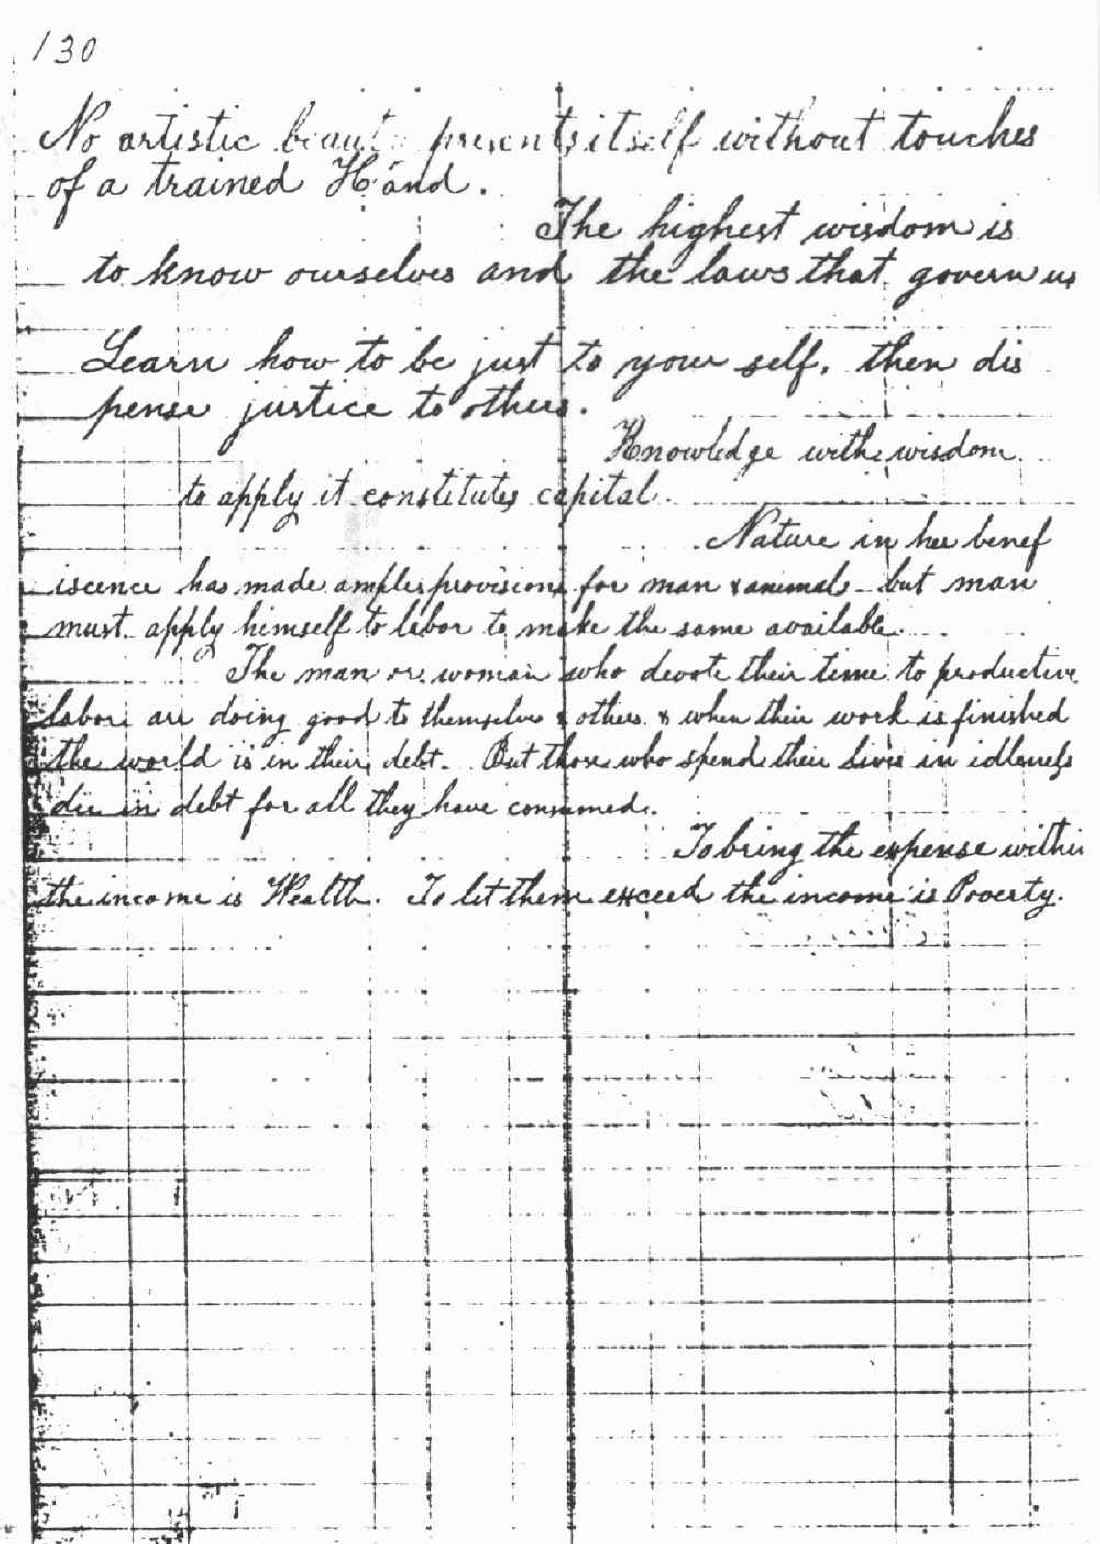 130
No artistic beauty presents itself without touches
of a trained Hand.
The highest wisdom is
to know ourselves and the laws that govern us
Learn how to be just to your self, then dis
pense justice to others.
Knowledge with wisdom
to apply it constitutes capital.
Nature in her benef
iscence has made ample provisions for man & animals - but man
must apply himself to labor to make the same available.
The man or woman who devote their time to productive
labor are doing good to themselves & others & when their work is finished
the world is in their debt. But those who spend their lives in idleness
die in debt for all they have consumed.
To bring the expense within
the income is Wealth. To let them exceed the income is Poverty.